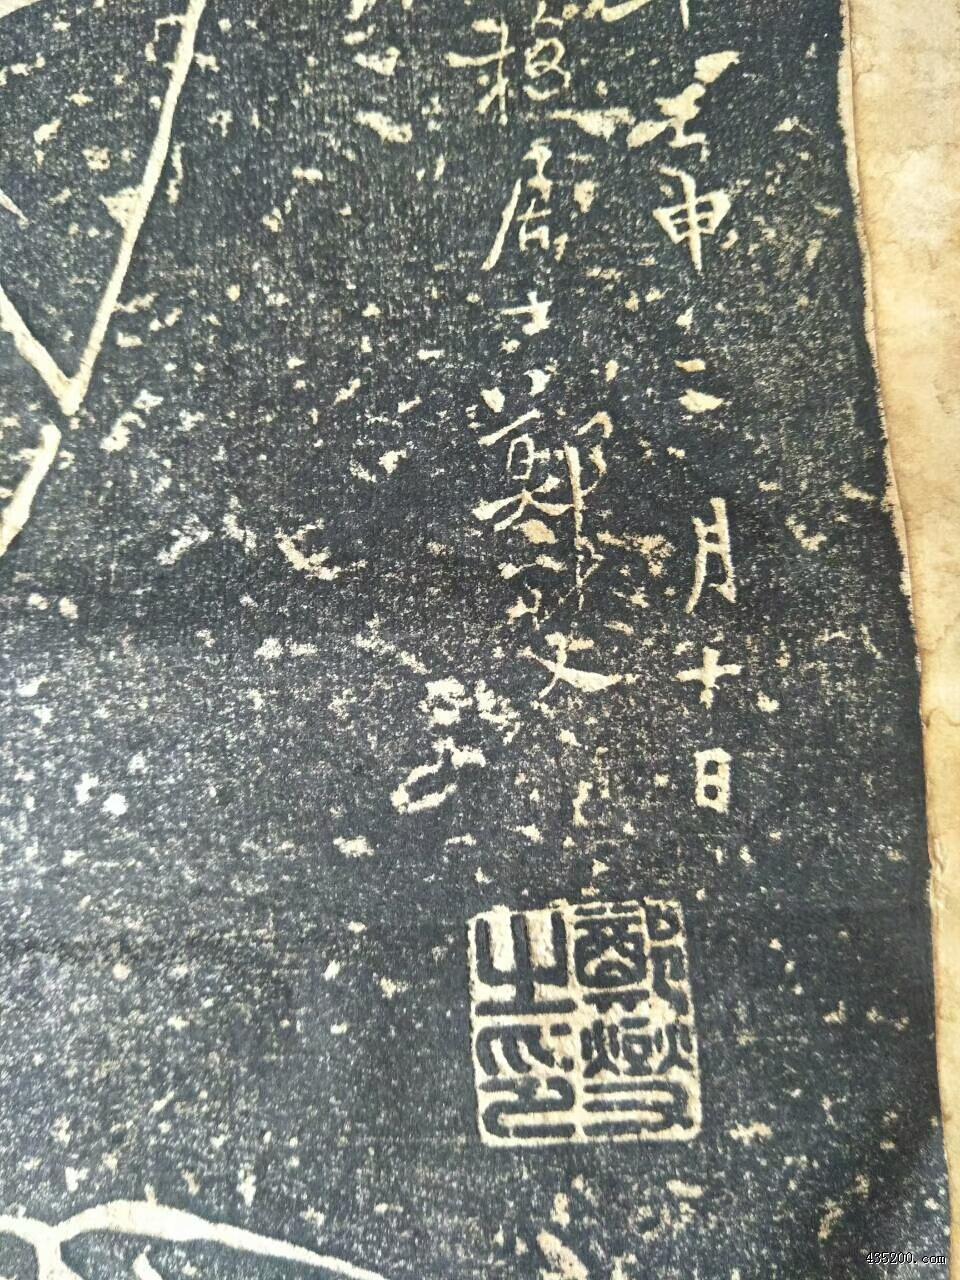 壬申二月十日
居士鄭燮
鄭燮
之印
435200.com